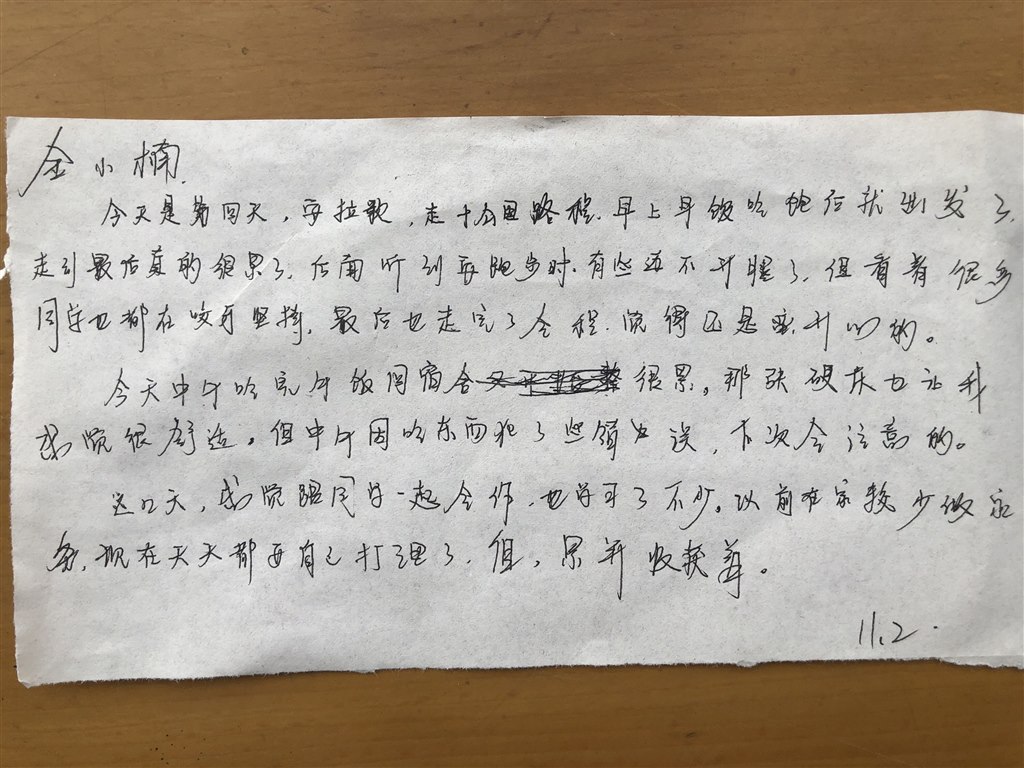 余小楠
今天是第四天，要拉歌，走十公里路程。早上早饭吃饱后就出发了，
走到最后真的很累了，后面听到要跑步时，有些还不开腿了，但看着很多
同学也都在咬牙坚持，最后也走完了全程，觉得还是蛮开心的。
今天中午吃完午饭回宿舍很累。那张硬床也让我
感觉很舒适。但中午因吃东西犯了些错误，下次会注意的。
这几天，感觉跟同学一起合作，也学习了不少。以前在家较少做家
务，现在天天都要自己打理了，但，累并收获着。
11.2.